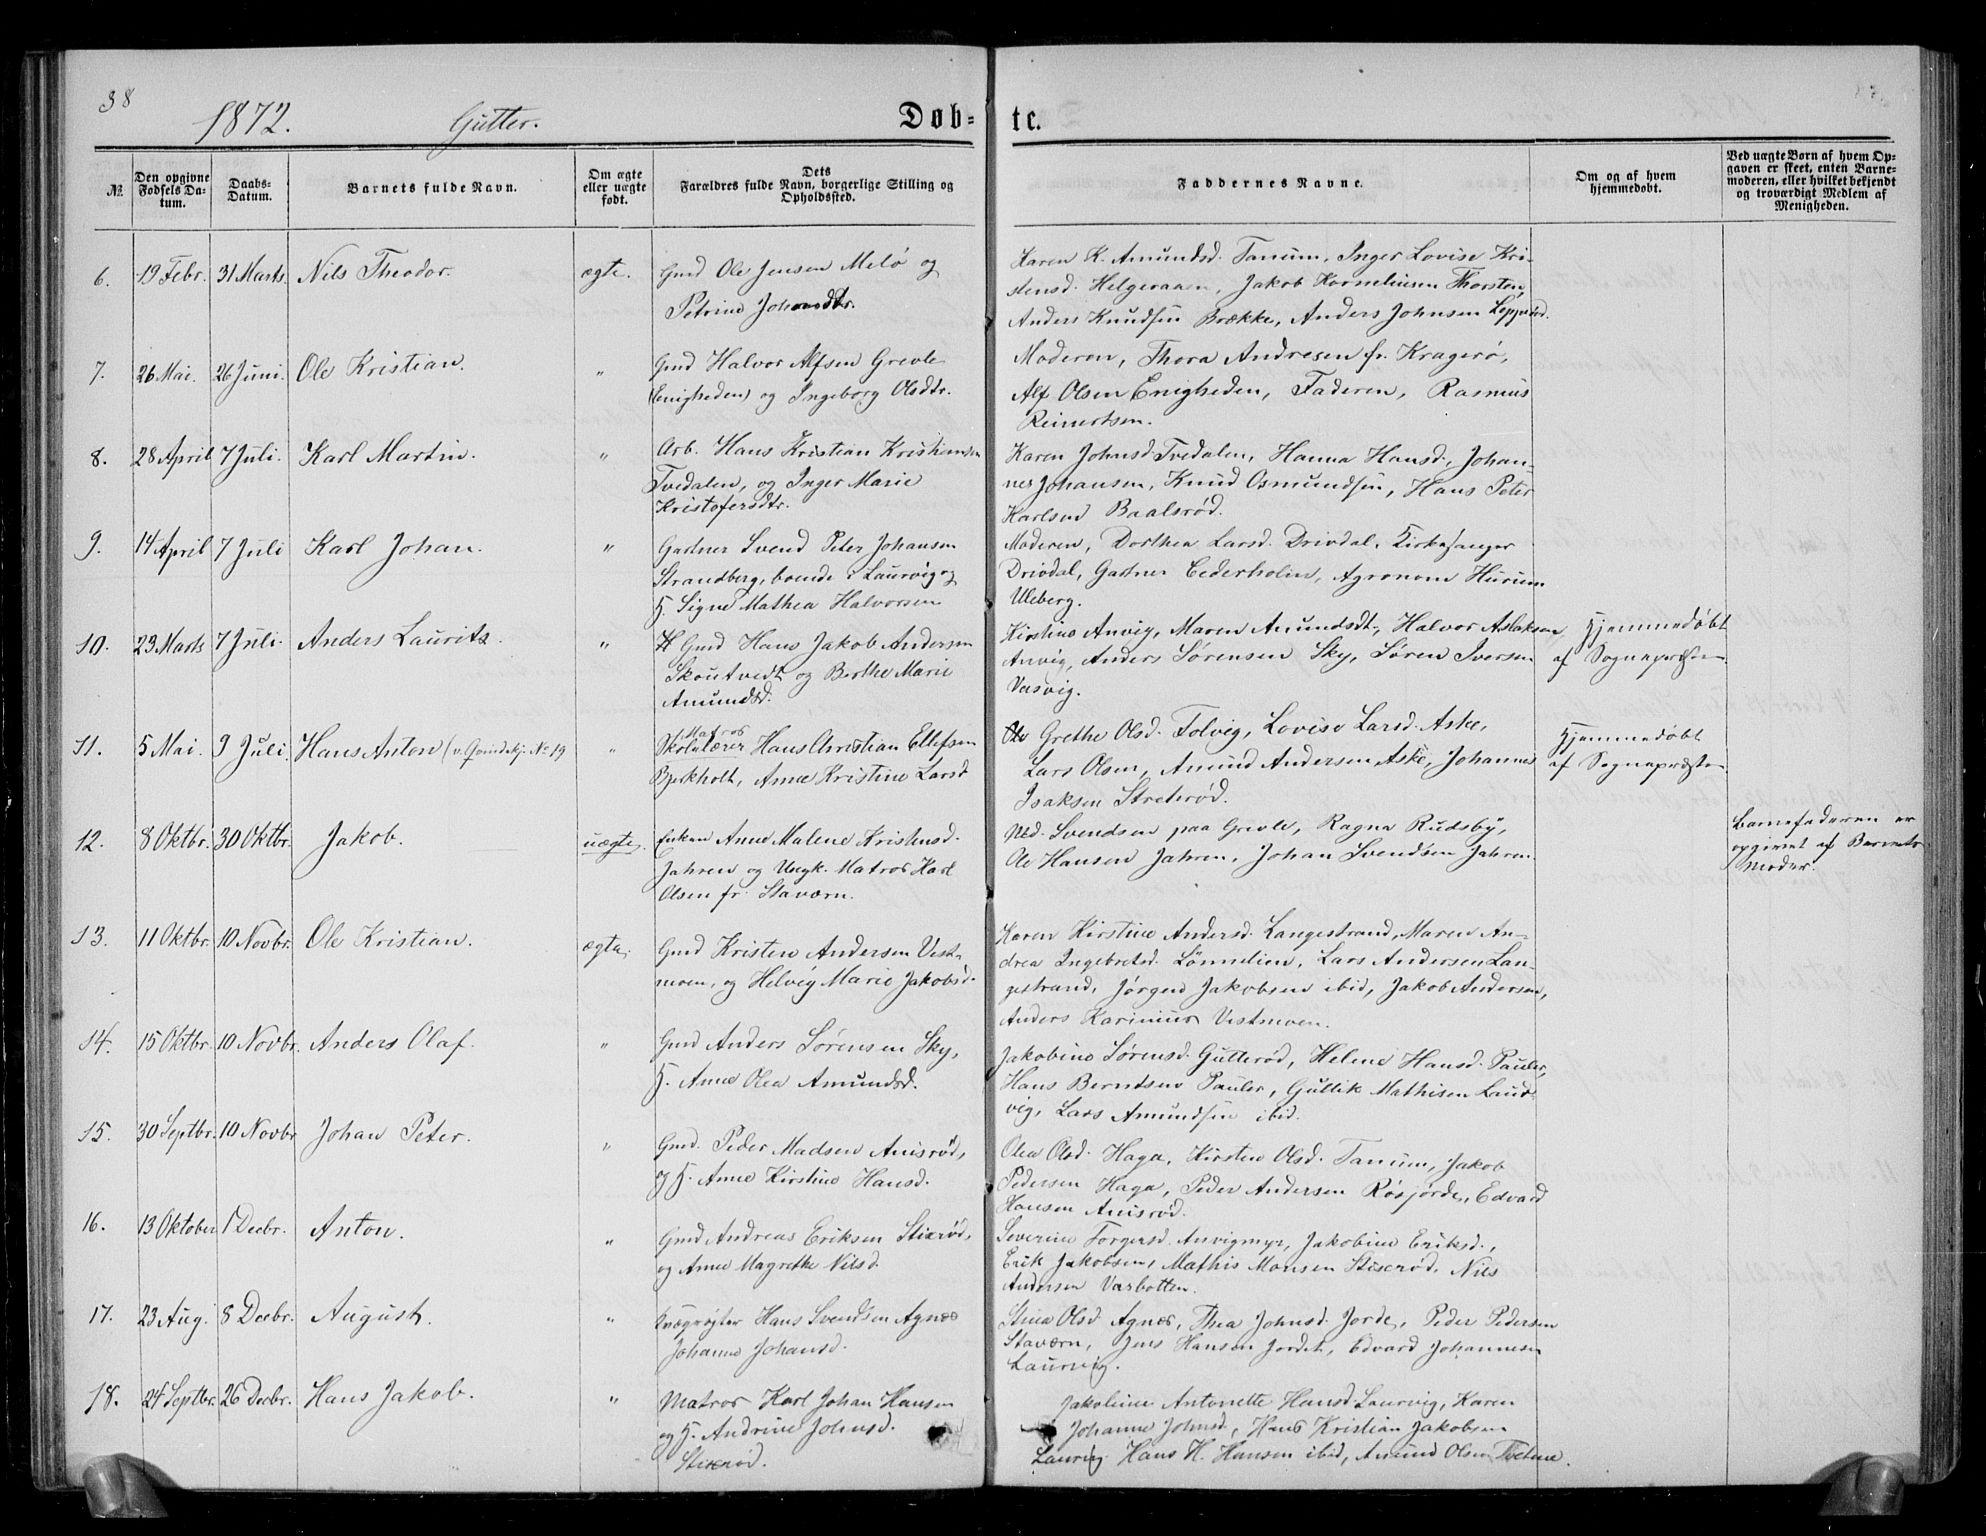 38
1872. Gutter.
Døb-
te.
№
Den opgivne Fødsels Datum.
Daabs-Datum.
Barnets fulde Navn.
Om ægte eller uægte født.
Dets Forældres fulde Navn, borgerlige Stilling og Opholdssted.
Faddernes Navne.
Om og af hvem hjemmedøbt.
Ved uægte Børn af hvem Opgaven er skeet, enten Barnemoderen, eller hvilket bekjendt og troværdigt Medlem af Menigheden.
6. 19 Febr. 31 Marts. Nils Theodor. ægte. Gmd Ole Jensen Melø og
Petrine Johansdtr.
Karen K. Amundsd. Tanum, Inger Lovise Kri-
stensd. Helgeraaen, Jakob Korneliusen Thorsten,
Anders Knudsen Brække, Anders Johnsen
7. 26 Mai. 26 Juni. Ole Kristian. " Gmd Halvor Alfsen Grevle
(Enigheden) og Ingeborg Olsdtr.
Moderen, Thora Andresen fr. Kragerø,
Alf Olsen Enigheden, Faderen, Rasmus
Reinertsen.
8. 28 April 7 Juli. Karl Martin. " Arb. Hans Kristian Kristiansen
Tvedalen, og Inger Marie
Kristofersdtr.
Karen Johnsd. Tvedalen, Hanna Hansd., Johan-
nes Johansen, Knud Osmundsen, Hans Peter
Karlsen Baalsrød.
9. 14 April 7 Juli Karl Johan. " Gartner Svend Peter Johansen
Strandberg, boende i Laurvig og
H. Signe Mathea Halvorsen
Moderen, Dorthea Larsd. Drivdal, Kirkesanger
Drivdal, Gartner Cederholm, Agronom Hurum
Uleberg.
10. 23 Marts 7 Juli. Anders Laurits. " Gmd Hans Jakob Andersen
Skoutvedt og Berthe Marie
Amundsd.
Kirstine Anvig, Maren Amundsdt., Halvor Aslaksen
Anvig, Anders Sørensen Sky, Søren Iversen
Vasvig.
Hjemmedøbt
af Sognepræsten
11. 5 Mai. 9 Juli. Hans Anton (v. Qvindekj. No 19 "
Matros
Skolelærer Hans Christian Ellefsen
Bjerkholt, Anne Kristine Larsd
Grethe Olsd. Tolvig, Lovise Larsd. Aske,
Lars Olsen, Amund Andersen Aske, Johannes
Isaksen Streterød.
Hjemmedøbt
af Sognepræsten
12. 8 Oktbr. 30 Oktbr. Jakob. uægte. Enken Anne Malene Kristensd.
Jahren og Ungk. Matros Karl
Olsen fr. Staværn.
Svendsen paa Grevle, Ragna Rudsby,
Ole Hansen Jahren, Johan Svendsen Jahren.
Barnefaderen er
opgivet af Barnets
Moder.
13. 11 Oktbr. 10 Novbr. Ole Kristian. ægte. Gmd Kristen Andersen Vest-
moen, og Helvig Marie Jakobsd.
Karen Kirstine Andersd. Langestrand, Maren An-
drea Ingebretsd. Lønnelien, Lars Andersen Lan-
gestrand, Jørgen Jakobsen ibid, Jakob Andersen,
Anders Karinius Vestmoen.
14. 15 Oktbr. 10 Novbr. Anders Olaf. " Gmd Anders Sørensen Sky,
H. Anne Olea Amundsd.
Jakobine Sørensd. Gutterød, Helene Hansd. Pauler,
Hans Berntsen Pauler, Gullik Mathisen Laur-
vig, Lars Amundsen ibid.
15. 30 Septbr. 10 Novbr Johan Peter. " Gmd. Peder Madsen Anisrød,
og H. Anne Kirstine Hansd.
Olea Olsd. Haga, Kirsten Olsd. Tanum, Jakob
Pedersen Haga, Peder Andersen Røsjorde, Edvard
Hansen Anisrød.
16. 13 Oktober 1 Decbr. Anton. " Gmd Andreas Eriksen Stixrød,
og Anne Magrethe Nilsd.
Severine Torgersd. Anvigmyr, Jakobine Eriksd.,
Erik Jakobsen, Mathis Monsen Stixrød, Nils
Andersen Varbotten.
17. 23 Aug. 8 Decbr. August. " Kvægrøgter Hans Svendsen Agnæs
Johanne Johansd.
Stina Olsd Agnæs, Thea Johnsd. Jorde, Peder Pedersen
Stavern, Jens Hansen Jordet, Edvard Johannesen
Laurvig.
18. 24 Septbr. 26 Decbr. Hans Jakob. " Matros Karl Johan Hansen
og H. Andrine Johnsd.
Stixrød.
Jakoline Antonette Hansd. Laurvig, Karen
Johanne Johnsd., Hans Kristian Jakobsen
Laurvig, Hans H. Hansen ibid, Amund Olsen Tvetene.